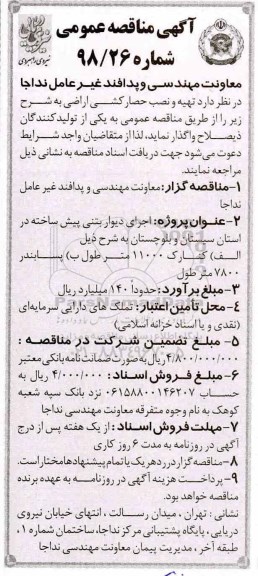 آگهی مناقصه عمومی
شماره ۹۸/۲۶
معاونت مهندسی و پدافند غیر عامل نداجا
در نظر دارد تهیه و نصب حصار کشی اراضی به شرح
زیر را از طریق مناقصه عمومی به یکی از تولیدکنندگان
ذیصلاح واگذار نماید، لذا از متقاضیان واجد شرایط
دعوت می‌شود جهت دریافت اسناد مناقصه به نشانی ذیل
مراجعه نمایند.
۱-مناقصه گزار: معاونت مهندسی و پدافند غیر عامل
نداجا
۲-عنوان پروژه: اجرای دیوار بتنی پیش ساخته در
استان سیستان و بلوچستان به شرح ذیل
الف) کنارک ۱۱۰۰۰ متر طول ب) پسابندر
۷۸۰۰ متر طول
۳-مبلغ برآورد: حدوداً ۱۴۰ میلیارد ریال
۴-محل تأمین اعتبار: تملک های دارایی سرمایه‌ای
(نقدی و یا اسناد خزانه اسلامی)
۵-مبلغ تضمین شرکت در مناقصه :
۴/۸۰۰/۰۰۰/۰۰۰ ریال به صورت ضمانت نامه بانکی معتبر
۶-مبلغ فروش اسناد: ۴/۰۰۰/۰۰۰ ریال به
حساب ۰۶۱۵۸۸۰۰۱۴۶۲۰۷ نزد بانک سپه شعبه
کوهک به نام وجوه متفرقه معاونت مهندسی نداجا
۷-مهلت فروش اسناد: از یک هفته پس از درج
آگهی در روزنامه به مدت ۶ روز کاری
۸-مناقصه گزار در رد هر یک یا تمام پیشنهادها مختار است.
۹-پرداخت هزینه آگهی در روزنامه به عهده برنده
مناقصه خواهد بود.
نشانی: تهران، میدان رسالت، انتهای خیابان نیروی
دریایی، پایگاه پشتیبانی مرکز نداجا، ساختمان شماره ۱،
طبقه آخر، مدیریت پیمان معاونت مهندسی نداجا